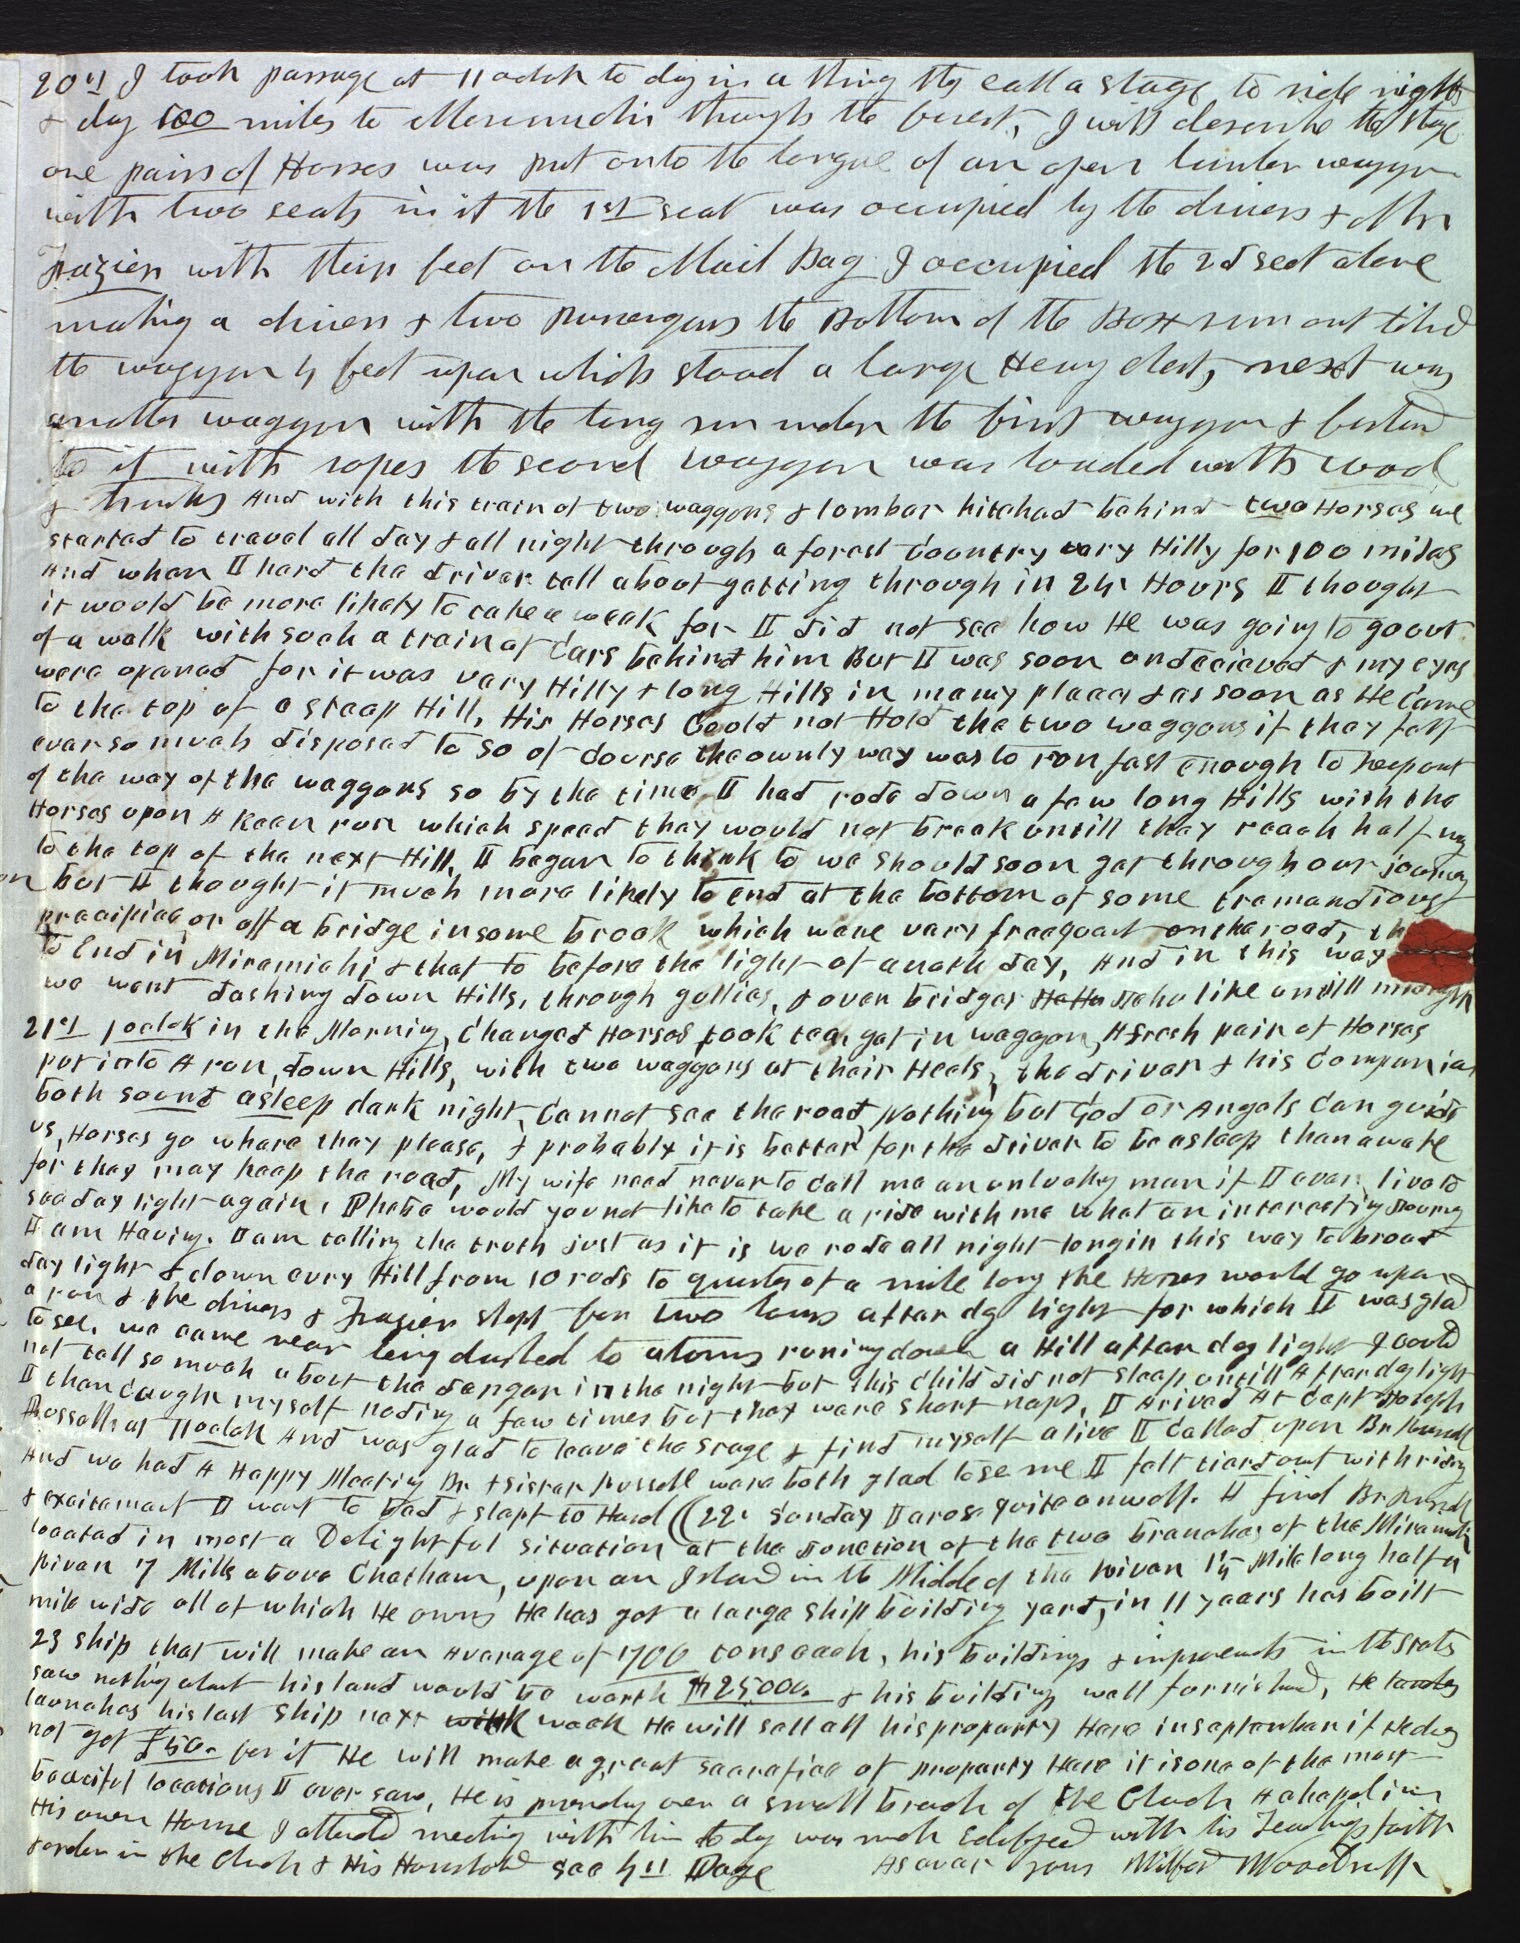 20th I took passage at 11 oclok to day in a thing they call a stage to ride night
& day 100 miles to Meremichi through the forest, I will describe the stage
one pair of Horses was put onto the tongue of an open lumber waggon
with two seats in it the 1st seat was occupied by the driver & Mr
Frazier with their feet on the Mail Bag I occupied the 2d seat alone
making a driver & two passengers the Bottom of the Box run out behind
the waggon 4 feet upon which stood a large Heavy chest, next was
another waggon with the tong run under the first waggon & fastend
to it with ropes the second waggon was loaded with wood
& trunks And with this train of two waggons & lumbar hitched behind two Horses we
started to travel all day & all night through a forest Country vary Hilly for 100 miles
And when I hard the driver tell about getting through in 24 Hours I thought
it would be more likely to take a week for I did not see how He was going to go out
of a walk with such a train of Cars behind him But I was soon undecieved & my eyes
were opened for it was vary Hilly & long Hills in many places & as soon as He Came
to the top of a steep Hill, His Horses Could not Hold the two waggons if they felt
ever so much disposed to so of Course the ownly way was to run fast enough to keep out
of the way of the waggons so by the time I had rode down a few long Hills with the
Horses upon A keen run which speed they would not break untill they reach half way
to the top of the next Hill, I began to think to we should soon get through our journey
but I thought it much more likely to end at the bottom of some tremendious
precipice or off a bridge in some brook which were vary freequent on the road,
to End in Miramichi & that to before the light of anoth day, And in this way
we went dashing down Hills, through gullies, & over bridges Jehu like untill
21st 1 oclok in the Morning, Changed Horses took tea, got in waggon, A fresh pair of Horses
put into A run, down Hills, with two waggons at their Heels, the driver & his Companion
both sound asleep dark night, Cannot see the road, Nothing but God or Angels Can guide
us, Horses go where they please, & probably it is better for the driver to be asleep than awake
for they may keep the road, My wife need never to Call me an unlucky man if I ever live to
see day light again, Phebe would you not like to take a ride with me what an interesting Journey
I am Having. I am telling the truth just as it is we rode all night long in this way to broad
day light & down evry Hill from 10 rods to quarter of a mile long the Horses would go upon
a run & the driver & Frazier slept for two hours after day light for which I was glad
to see. we came near being dashed to atoms runing down a Hill after day light I could
not tell so much about the danger in the night but this child did not sleep untill After day light
I than Caught myself noding a few times but they were short naps, I Arived At Capt Joseph
Russells at 11 oclok And was glad to leave the stage & find myself alive I Called upon Br Russell
And we had A Happy Meeting Br & sister Russell were both glad to se me I felt tiard out with riding
& excitement I went to bed & slept to Hard (22. Sunday I arose quite unwell. I find Br Russell
located in most a Delightful situation at the Junction of the two branches of the Miramichi
River 17 Miles above Chatham, upon an Island in the Middle of the River 1¼ Mile long half a
mile wide all of which He owns He has got a large ship building yard, in 11 years has built
23 ship that will make an Avarage of 1700 tons each, his buildings & improvements in the States
saw nothing about his land would be worth $25000. & his building well furnished, He
launches his last ship next week He will sell all his property Here in september if He dos
not get £50. for it He will make a great sacrafice of property Here it is one of the most
beautiful locations I ever saw, He is presidng over a small branch of the Church A chapel in
His own Home I attended meeting with him to day was much edefyed with his Teaching, faith
& order in the Church & His Household see 4th Page As ever yours Wilford Woodruff